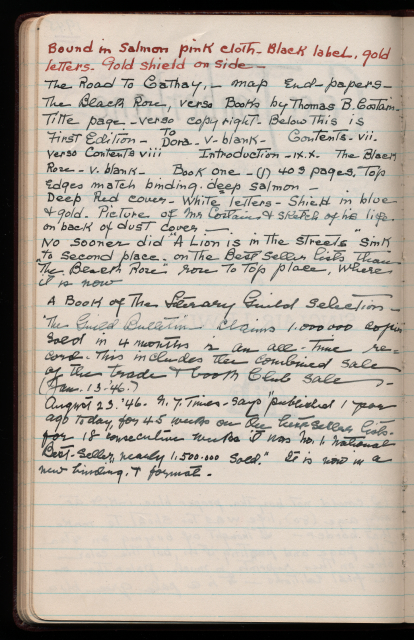 Bound in Salmon pink cloth - Black label, gold
letters. Gold shield on side -
The Road To Cathay, - map End-papers -
The Black Rose, verso Books by Thomas B. Costain -
Title page - verso copyright. Below This is
First Edition - To Dora - v - blank - Contents - vii.
verso Contents viii Introduction - ix.x. The Black
Rose - v. blank - Book one - (1) 403 pages, Top
Edges match binding. deep salmon -
Deep Red cover - White letters - Shield in blue
& gold. Picture of Mr Costain & sketch of his life.
on back of dust cover -
No sooner did "A Lion is in the streets" sink
to second place. on the Best Seller lists than
"The Black Rose rose to Top place, where
it is now
A Book of the Literary Guild Selection -
The Guild Bulletin claims 1.000.000 copies
Sold in 4 months is an all-time re-
cord. This includes the combined sale
of the trade & book Club sale -
(Jan. 13 '46.)
August 25. '46. N.Y. Times - says "published 1 year
ago today, for 45 weeks on the best seller lists -
for 18 consecutive weeks it was No. 1. national
Best-Seller, nearly 1.500.000 sold." It is now in a
new binding, & format.